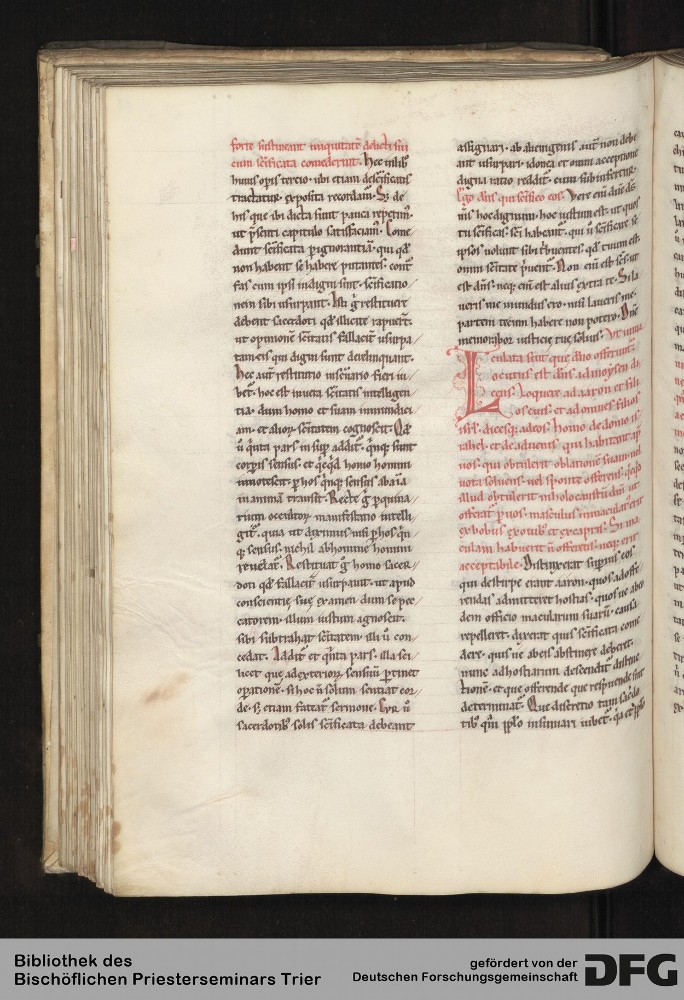 forte sustineant iniquitatē delicti sui
cum scīficata comederint. Hec in libˢ
huius opis tercio. ubi etiam de scīficatis
tractatur. exposita recordam̄. Sȝ de
his que ibi dicta sunt pauca repetim̄.
ut p̄senti capitulo satisfaciam̄. Come
dunt scīficata p ignorantiā. qui qd̄
non habent se habere putantes. cont̄
fas eum ipsi indigni sint. scīficatio
nem sibi usurpant. Isti g̊ restituere
debent sacerdoti qd̄ illicite rapuer̄t.
ut opinionē scītatis fallacit̄ usurpa
tam eis qui digni sunt derelinquant.
Hec aut̄ restitutio in scīuario fieri iu
bet̄. hoc est in uera scītatis intelligen
tia. dum homo et suam inmundici
am. et alioꝝ scītatem cognoscit. Qd̄
ū q̇nta pars insup additˀ. q̇nq̨ sunt
corpis sensus. et q̇cq̇d homo homini
innotescit. p hos q̇nq̨ sensus ab aīa
in animā transit. Recte g̊ p quina
rium occultoꝝ manifestatio intelli
gitˀ. quia ut diximus nisi p hos q̇n
q̨ sensus. nichil ab homine homini
reuelatˀ. Restituat g̊ homo sacer
doti qd̄ fallacit̄ usurpauit. ut apud
conscientię suę examen dum se pec
catorem. illum iustum agnoscit.
sibi subtrahat scītatem. illi ū con
cedat. Additˀ et q̇nta pars. illa sci
licet que ad exterioꝝ sensuū ptinet
opationē. si hoc ū solum sentiat cor
de. sȝ etiam fateatˀ sermone. Cur ū
sacerdotibˢ solis scīficata debeant
assignari. ab alienigenis aut̄ non debe
ant usurpari. idonea et omni acceptione
digna ratio redditˀ. cum subinfertur.
Ego dn̄s qui scīfico eos. Vere enī dn̄e dˢ
nr̄s hoc dignum. hoc iustum est. ut quos
tu scīficas. scī habeantˀ. qui ū scīficare se
ipsos uolunt sibi t̄buentes. qd̄ tuum est.
omni scītate p̄uentˀ. Non enī est scˢ. ut
est dn̄s. neq̨ enī est aliuˢ extra te. Si la
ueris me mundus ero. nisi laueris me.
partem tecum habere non potero. Dn̄e
memorabor iusticię tuę soluˢ. Ut inma
culata sint que dn̄o offerunt̄.
Locutus est dn̄s ad moysen di
cens. Loquere ad aaron et fili
os eius. et ad omnes filios
isrl̄. dicesq̨ ad eos. homo de domo is
rahel. et de aduenis qui habitant ap̄
uos. qui obtulerit oblationē suam uel
uota soluens. uel sponte offerens. q̇cq̇d
illud obtulerit in holocaustū dn̄i. ut
offeratˀ p uos. masculus inmaculatˢ erit
ex bobus ex ouibˢ et ex capris. Si ma
culam habuerit ū offeretis. neq̨ erit
acceptabile. Distinxerat supius eos
qui de stirpe erant aaron. quos ad offe
rendas admitteret hostias. quos ue ab eo
dem officio macularum suarū. causa
repelleret. dixerat quis scīficata come
dere. quis ue ab eis abstinere deberet.
nunc ad hostiarum descendit distinc
tionē. et que offerende que respuende sint
determinatˀ. Que discretio tam sac̄do
tibˢ qm̄ pplo insinuari iubetˀ. q̇a et pplo
Bibliothek des
Bischöflichen Priesterseminars Trier
gefördert von der
Deutschen Forschungsgemeinschaft
DFG